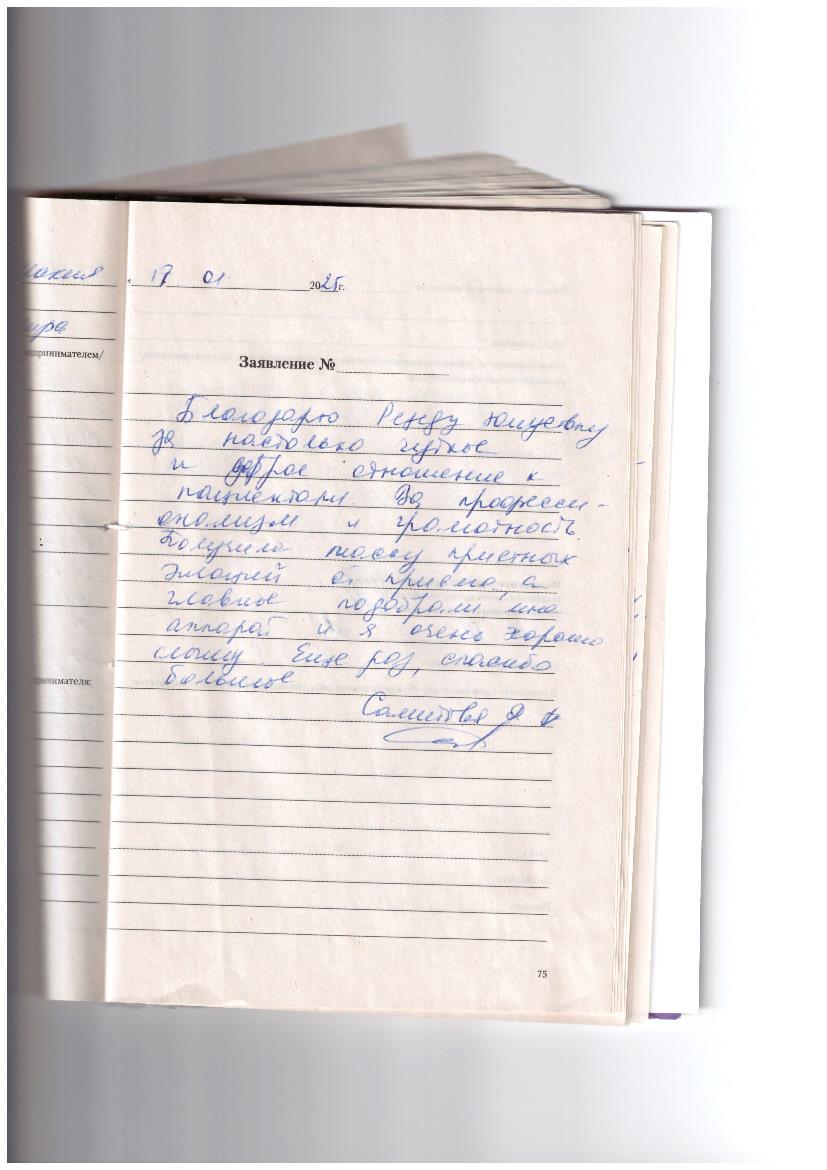 17 01 2025г.
Заявление №
Благодарю Ренду
за настолько чуткое
и доброе отношение к
пациентам. За професси-
онализм и грамотность.
Получила массу приятных
эмоций от приема, а
главное подобрали мне
аппарат и я очень хорошо
слышу. Еще раз, спасибо
большое
Саметовя
принимателем/
принимателя:
75